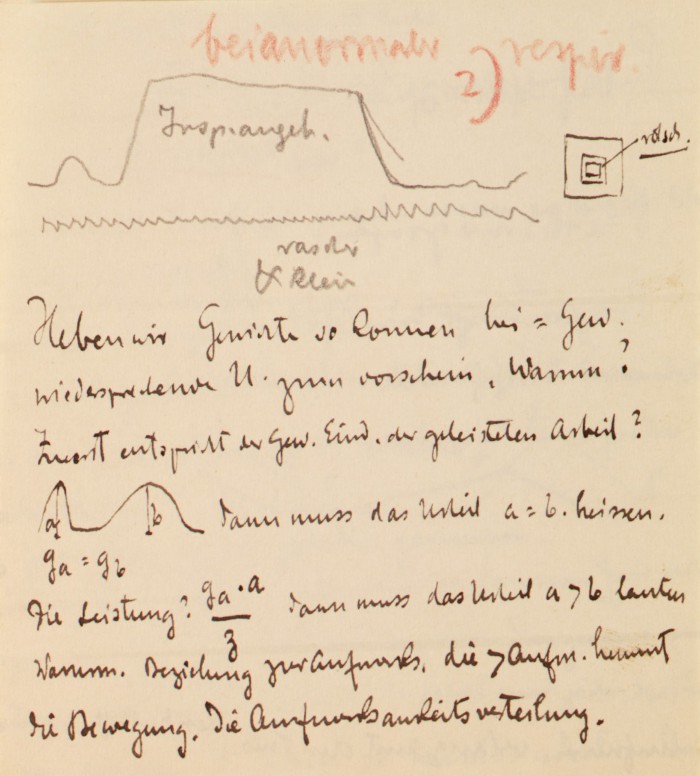 bei anormaler respir.
2)
Inspirangeh.
rötsch.
rascher
& klein
Heben wir Gewichte so kommen bei = Gew.
wiedersprechende U. zum vorschein, Warum?
Zuerst entspricht der Gew. Eind. der geleisteten Arbeit?
a b dann muss das Urteil a = b. heissen.
ga = gb
Die Leistung? ga · a / z dann muss das Urteil a > b lauten
Warum. Beziehung zur Aufmerks. die > Aufm. hemmt
die Bewegung. Die Aufmerksamkeitsverteilung.